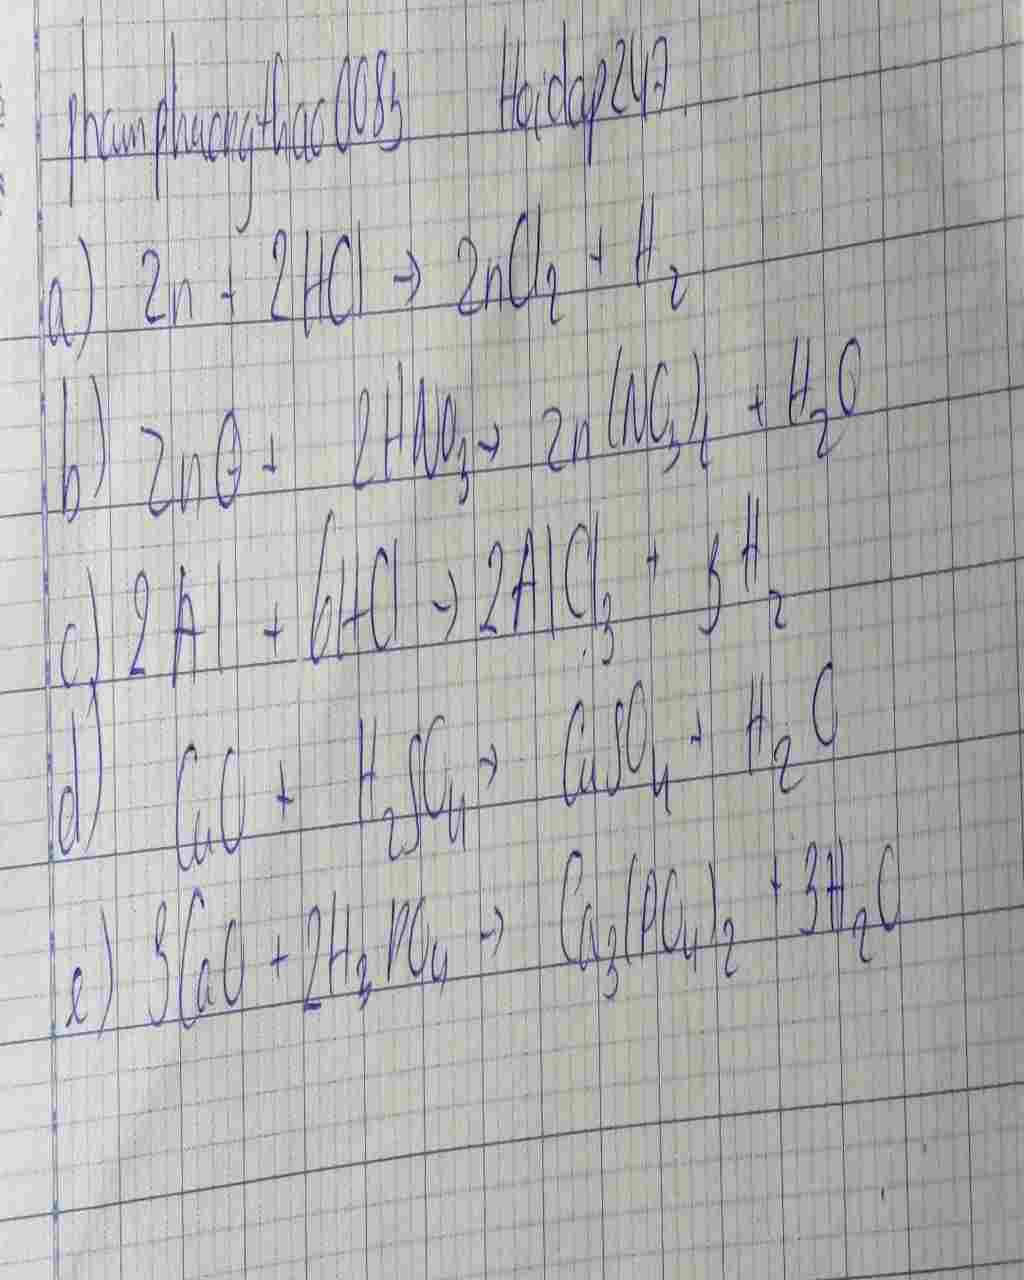 phamphuongthao0083 Hoidap247
a) Zn + 2HCl → ZnCl₂ + H₂
b) ZnO + 2HNO₃ → Zn(NO₃)₂ + H₂O
c) 2Al + 6HCl → 2AlCl₃ + 3H₂
d) CuO + H₂SO₄ → CuSO₄ + H₂O
e) 3CaO + 2H₃PO₄ → Ca₃(PO₄)₂ + 3H₂O